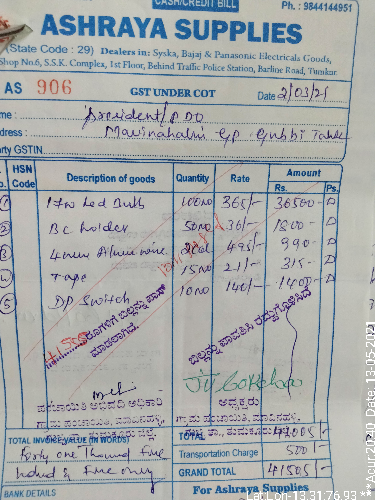 CASH/CREDIT BILL
Ph. : 9844144951
ASHRAYA SUPPLIES
(State Code : 29) Dealers in: Syska, Bajaj & Panasonic Electricals Goods,
Shop No.6, S.S.K. Complex, 1st Floor, Behind Traffic Police Station, Barline Road, Tumkur.
AS 906 GST UNDER COT Date 2/03/21
President/PDO
Mavinahalli GP Gubbi Taluk
Party GSTIN
HSN Code Description of goods Quantity Rate Amount Rs. Ps.
1 17w Led Bulb 100NO 365/- 36500-0
2 BC holder 50NO 36/- 1800-0
3 4mm wire 2 495/- 990-0
4 Tape 15NO 21/- 315-0
5 DP Switch 10NO 140/- 1400-0
ಬಿಲ್ಲನ್ನು ಪಾಸ್
ಮಾಡಲಾಗಿದೆ.
ಬಿಲ್ಲನ್ನು ಪಾವತಿಸಿ ರದ್ದುಗೊಳಿಸಿದೆ
ಪಂಚಾಯಿತಿ ಅಭಿವೃದ್ಧಿ ಅಧಿಕಾರಿ
ಅಧ್ಯಕ್ಷರು
ಗ್ರಾಮ ಪಂಚಾಯಿತಿ, ಮಾವಿನಹಳ್ಳಿ,
ಗ್ರಾಮ ಪಂಚಾಯಿತಿ, ಮಾವಿನಹಳ್ಳಿ,
TOTAL INVOICE VALUE (IN WORDS) TOTAL 41005/-
Forty one Thousand Five Transportation Charge 500/-
Hundred & Five only GRAND TOTAL 41505/-
BANK DETAILS For Ashraya Supplies
Lat,Lon-13.31:76.93
Date, 13-05-2021